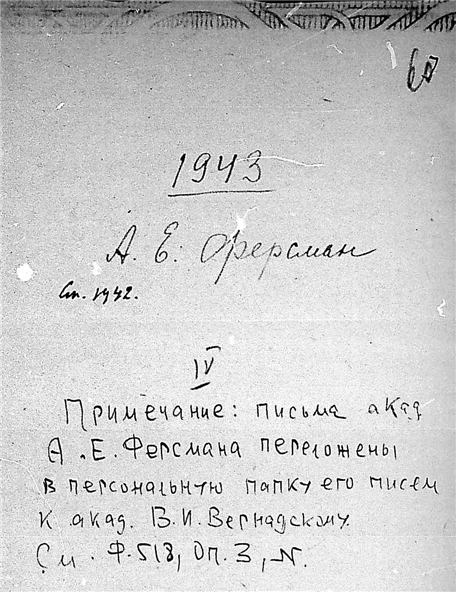 60
1943
А. Е. Ферсман
См. 1942.
IV
Примечание: письма акад
А. Е. Ферсмана переложены
в персональную папку его писем
к акад. В. И. Вернадскому.
См. Ф. 518, Оп. 3, N.